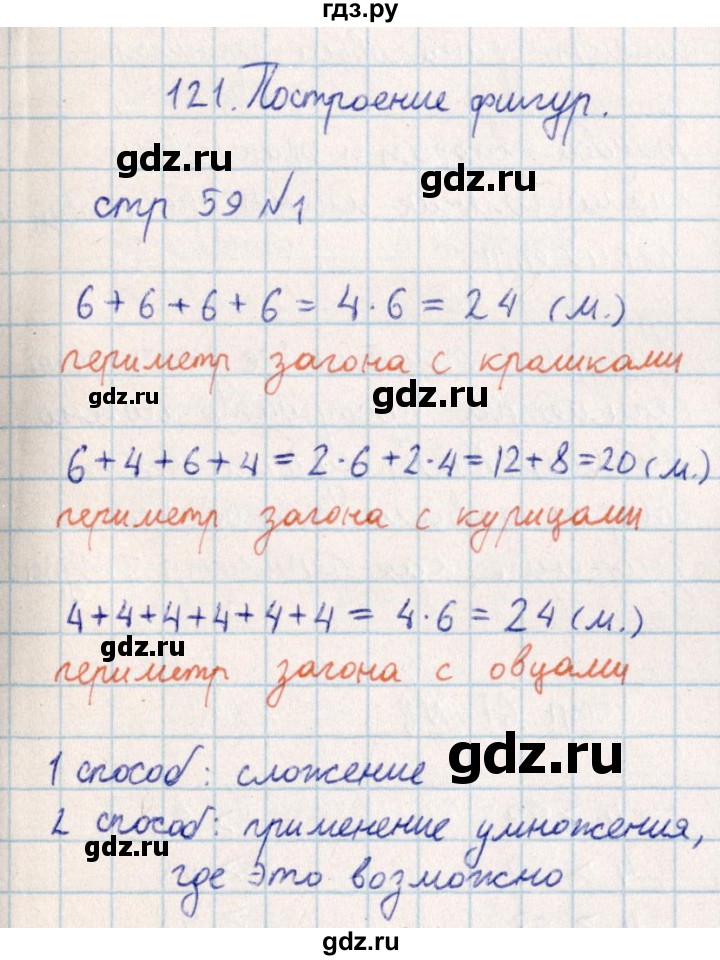 гдз.ру
121. Построение фигур.
gdz.ru
gdz.ru
стр 59 №1
6+6+6+6=4·6=24 (м.)
периметр загона с кроликами
gdz.ru
gdz.ru
6+4+6+4=2·6+2·4=12+8=20(м.)
gdz.ru
gdz.ru
периметр загона с курицами
4+4+4+4+4+4=4·6=24(м.)
gdz.ru
периметр загона с овцами
gdz.ru
1 способ: сложение
2 способ: применение умножения,
gdz.ru
где это возможно
gdz.ru
gdz.ru